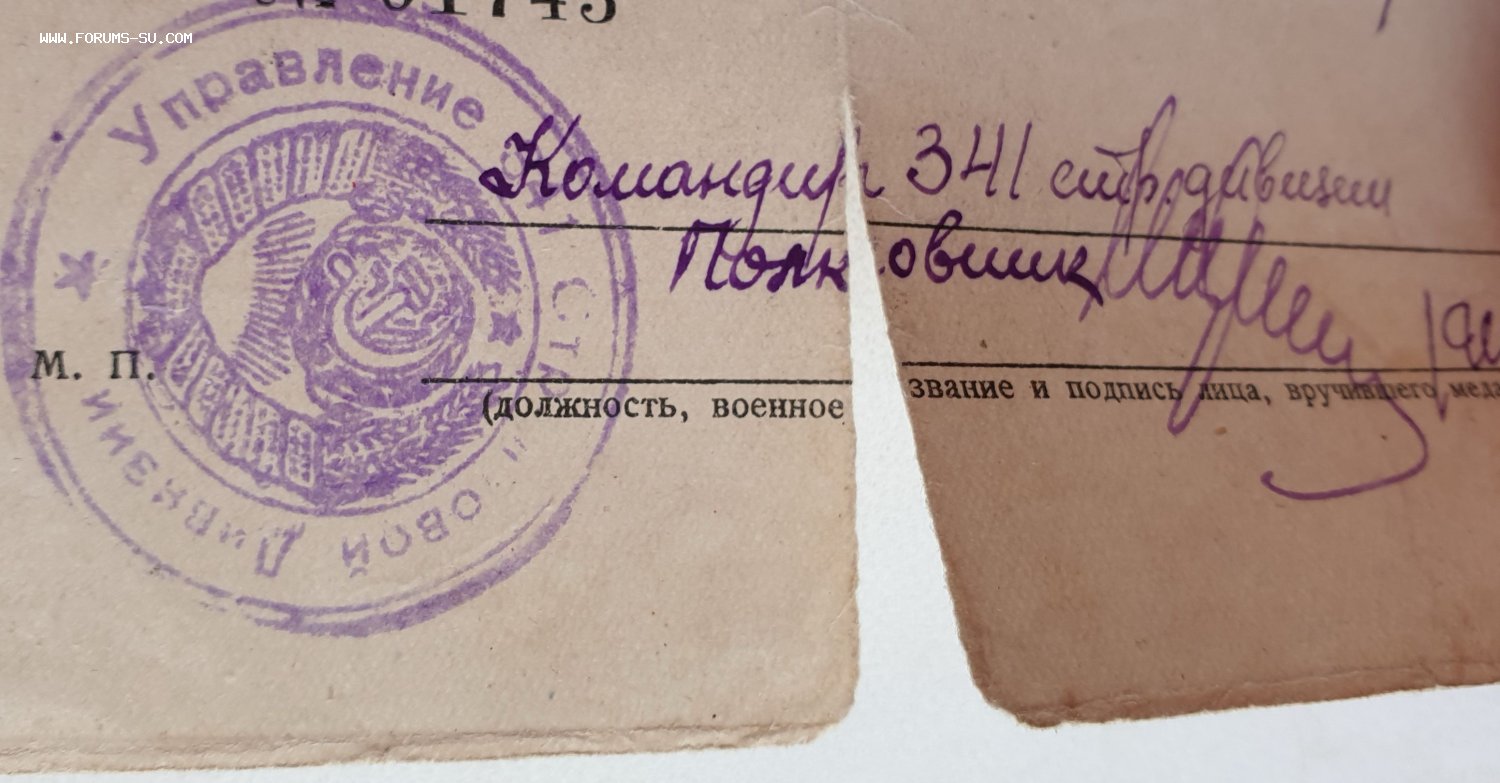 № 01743
WWW.FORUMS-SU.COM
Управление 341 Стрелковой Дивизии
Командир 341 стр. дивизии
Полковник
М. П.
(должность, военное звание и подпись лица, вручившего меда